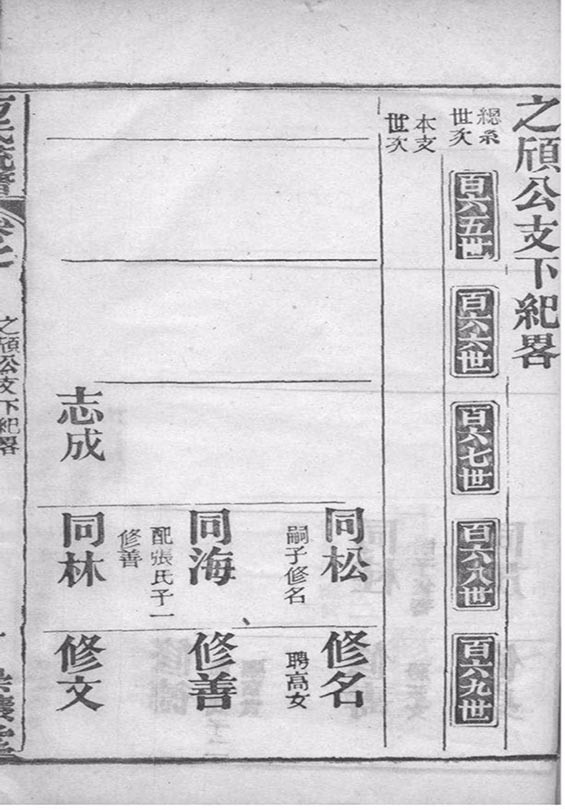 之頎公支下紀畧
總系
世次
百六五世
百六六世
百六七世
百六八世
百六九世
本支
世次
同松
嗣子修名
修名
聘高女
同海
配張氏子一
修善
修善
志成
同林
修文
之頎公支下紀畧